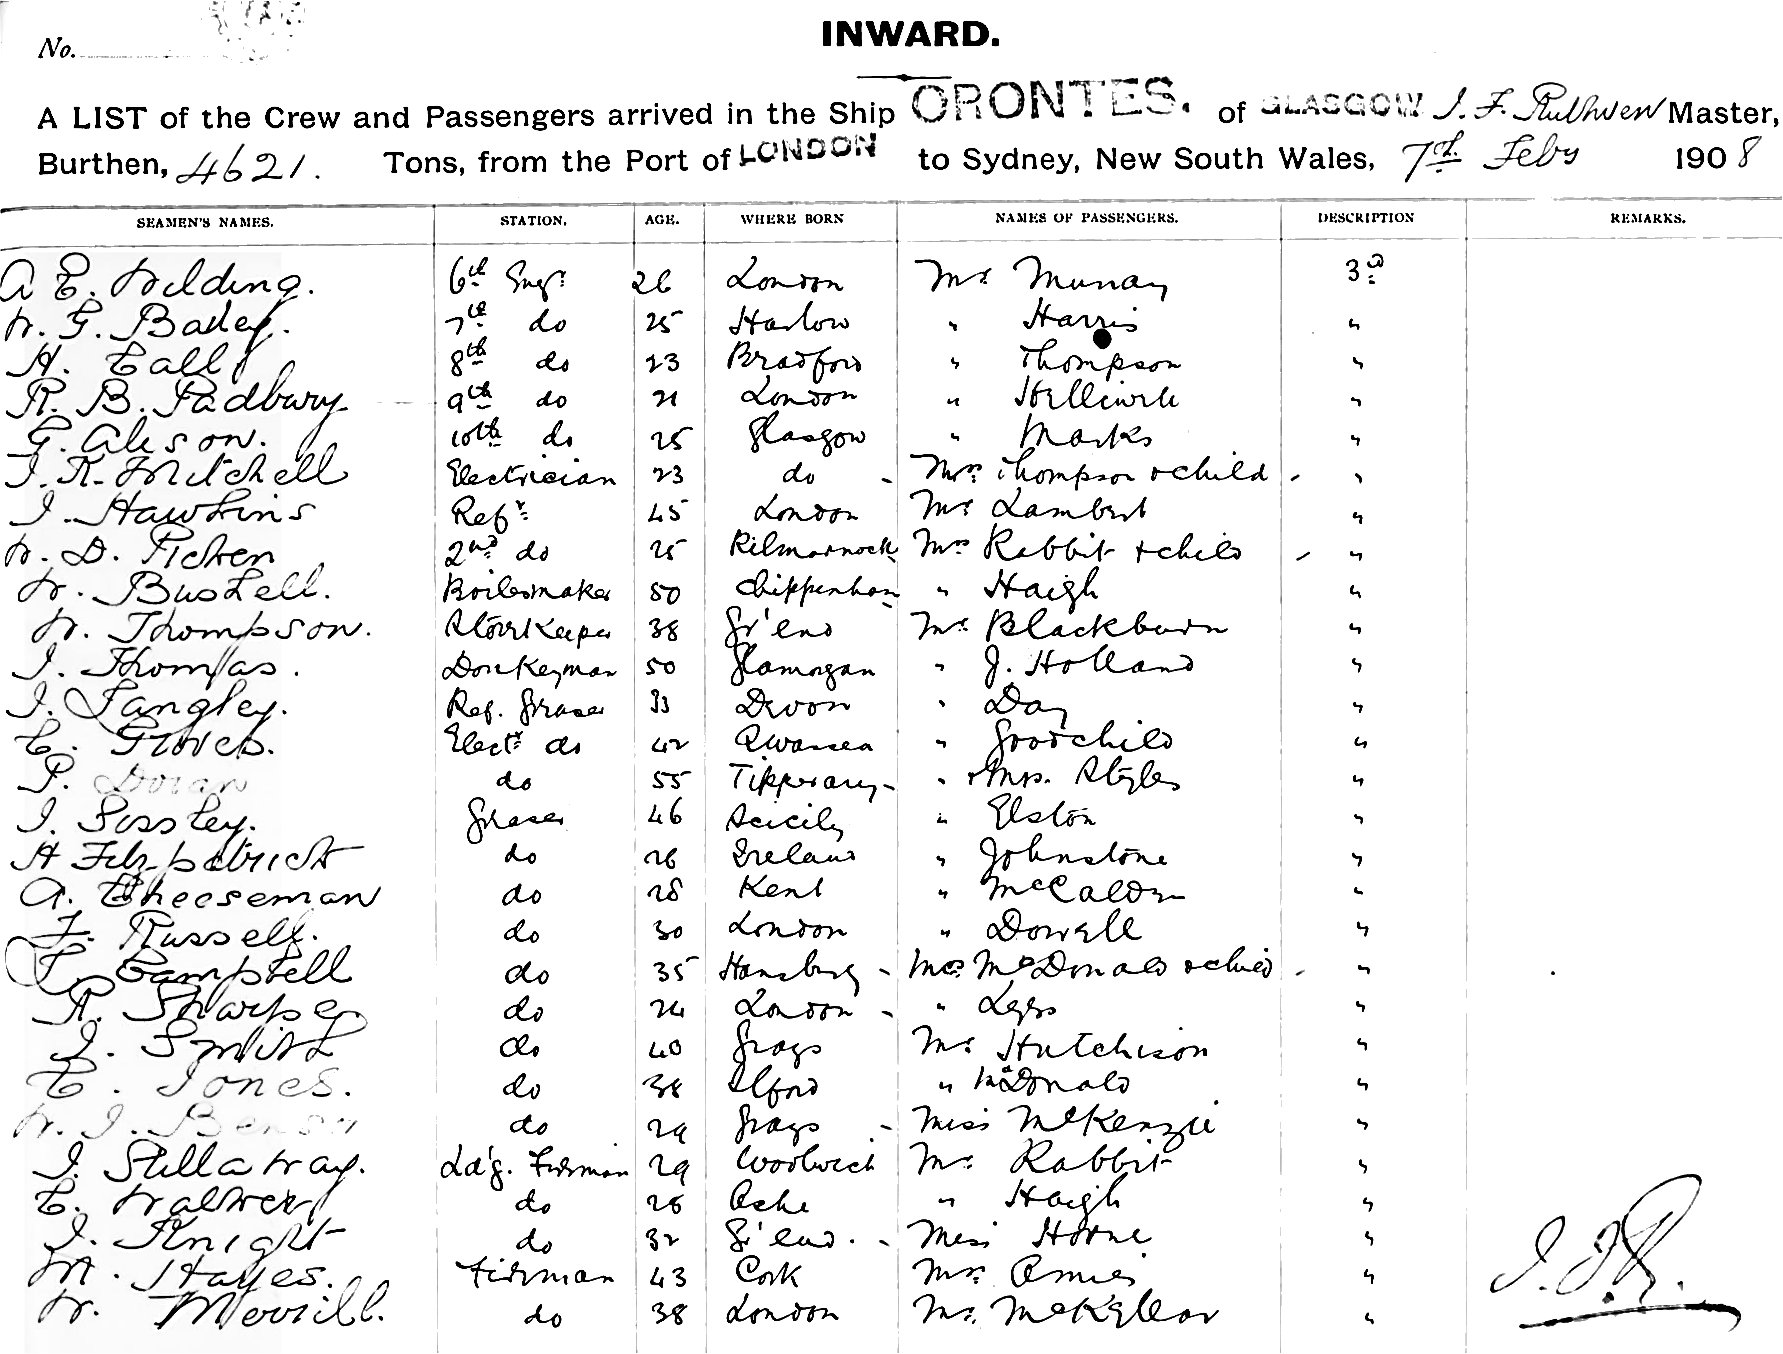 No.
INWARD.
A LIST of the Crew and Passengers arrived in the Ship ORONTES. of GLASGOW J. F. Ruthven Master,
Burthen, 4621. Tons, from the Port of LONDON to Sydney, New South Wales, 7th Feby 1908
SEAMEN'S NAMES. STATION. AGE. WHERE BORN NAMES OF PASSENGERS. DESCRIPTION REMARKS.
A E. Wilding. 6th Engr 26 London Mr Murray 3rd
W. G. Bailey. 7th do 25 Harlow " Harris "
H. Call 8th do 23 Bradford " Thompson "
R. B. Padbury 9th do 21 London " "
G. Alison. 10th do 25 Glasgow " Marks "
J. R. Mitchell Electrician 23 do - Mrs Thompson & child - "
J. Hawkins Refr 45 London Mr Lambert "
W. D. Picken 2nd do 25 Kilmarnock Mrs Rabbit & child - "
W. Bushell. Boilermaker 50 Chippenham " Haigh "
W. Thompson. Storekeeper 38 Gr'end Mr Blackburn "
J. Thomas. Donkeyman 50 Glamorgan " J. Holland "
J. Langley. Ref. Greaser 33 Devon " Day "
C. Groves. Electr do 42 Swansea " Goodchild "
P. Doran do 55 Tipperary - " & Mrs. Styles "
J. Greaser 46 Scicily " Elston "
H Fitzpatrick do 26 Ireland " Johnstone "
A. Cheeseman do 28 Kent " "
F. Russell. do 30 London " Dowell "
Campbell do 35 - Mrs McDonald & child - "
R. Sharpe do 24 London - " Legg "
J. Smith do 40 Grays Mr Hutchison "
C. Jones. do 38 Ilford " McDonald "
W. J. Benson do 29 Grays - Miss McKenzie "
J. Stellaway. Ldg. Fireman 29 Woolwich Mr Rabbit "
C. Walker do 28 Ashe " Haigh "
J. Knight do 32 Gr'end. - Miss Horne "
M. Hayes. Fireman 43 Cork Mrs Amies "
W. Merrill. do 38 London Mr. McKellar "
J.F.R.